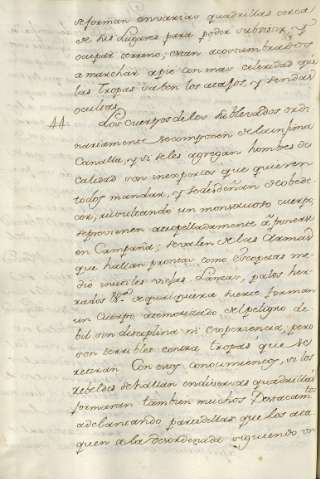 se forman en varias quadrillas cerca
de sus Lugares para poder subsistir, y
ocupar terreno; estan acostumbrados
a marchar apie con mas celeridad que
las tropas saben los atajos, y sendas
ocultas.
44 Los cuerpos de los sublevados ordi
nariamente se componen de la infima
Canalla, y si se les agregan hombres de
calidad son inexpertos que quieren
todos mandar, y se desdeñan de obede
cer, resultando un monstruoso cuerpo,
se previenen atropelladamente a ponerse
en Campaña; se valen de las Armas
que hallan prontas como Escopetas me
dio inutiles viejas Lanzas, palos her
rados &a. de qualquiera suerte forman
un Cuerpo atemorizado, del peligro de
bil sin disciplina ni experiencia, pero
son terribles contra tropas que se
retiran. Con este conocimiento, si los
rebeldes se hallan en diversas quadrillas
formaran tambien muchos Destacam.tos
adelantando para ellas que los ata
quen a la desordenada siguiendo un